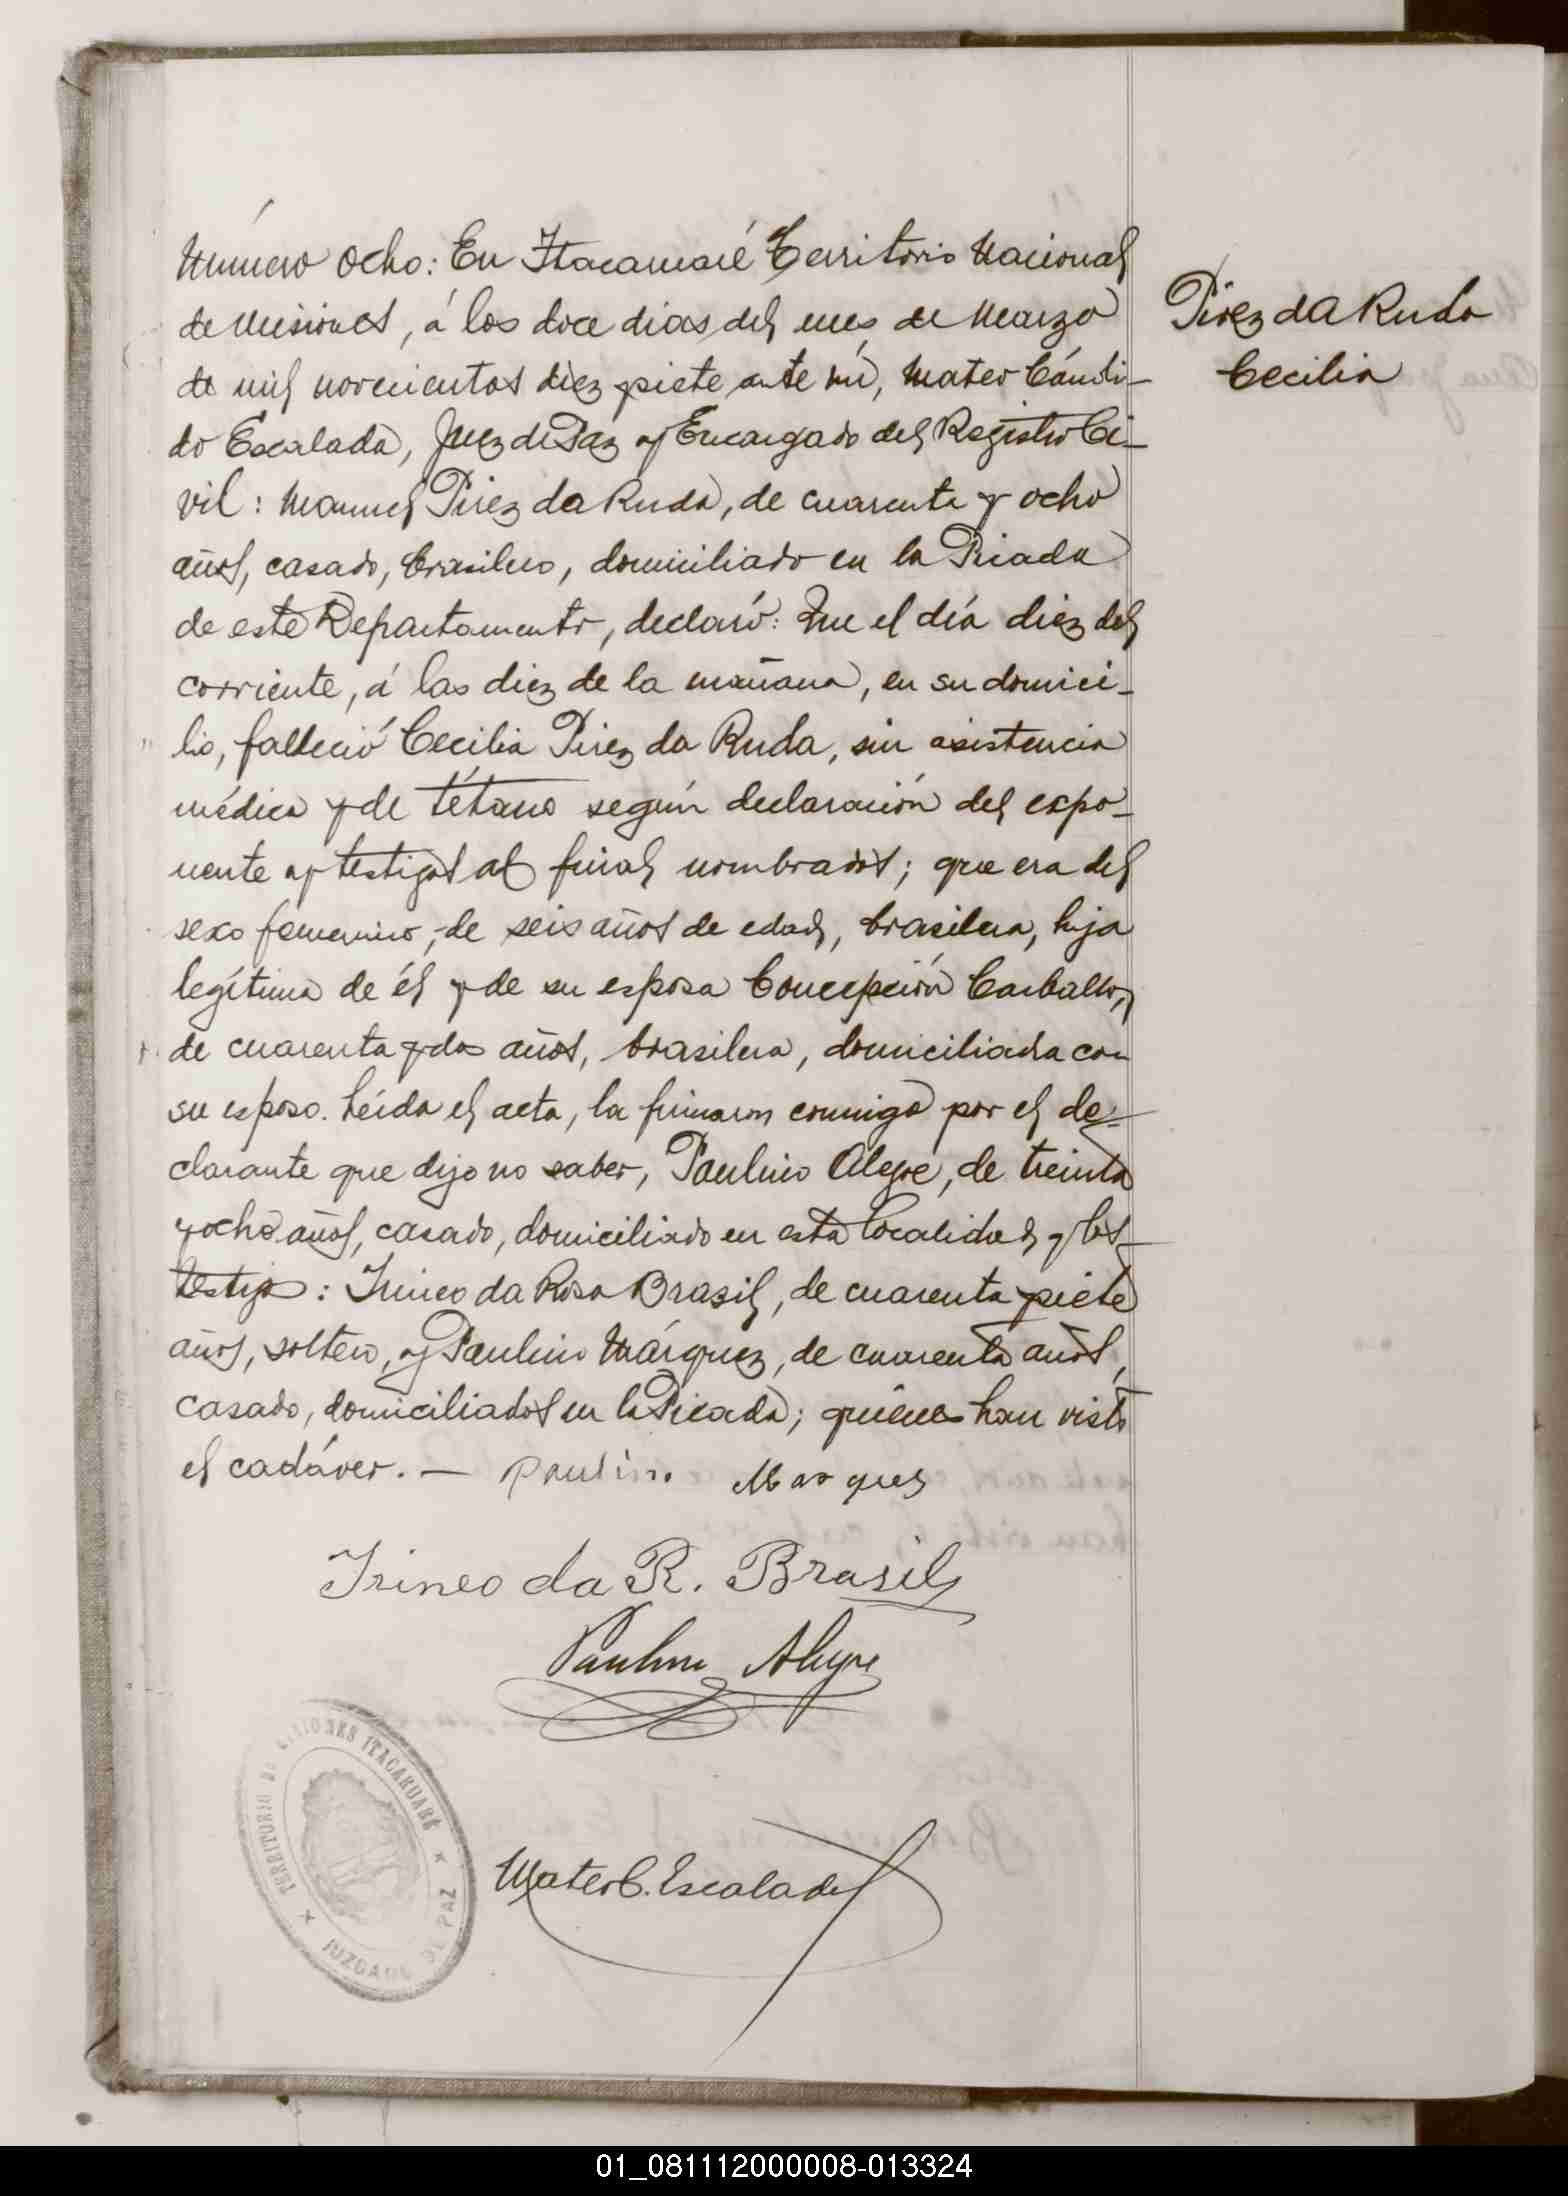 Número Ocho: En Itacaruaré Territorio Nacional
de Misiones, á los doce dias del mes de Marzo
de mil novecientos diez y siete ante mí, Mateo Cándi-
do Escalada, Juez de Paz y Encargado del Registro Ci-
vil: Manuel Pirez da Ruda, de cuarenta y ocho
años, casado, brasilero, domiciliado en la Picada
de este Departamento, declaró: Que el día diez del
corriente, á las diez de la mañana, en su domici-
lio, falleció Cecilia Pirez da Ruda, sin asistencia
médica y de tétano según declaración del expo-
nente y testigos al final nombrados; que era del
sexo femenino, de seis años de edad, brasilera, hija
legítima de él y de su esposa Concepción Carballo,
de cuarenta y dos años, brasilera, domiciliada con
su esposo. Leída el acta, la firmaron conmigo por el de-
clarante que dijo no saber, Paulino Alegre, de treinta
y ocho años, casado, domiciliado en esta localidad y los
testigos: Irineo da Rosa Brasil, de cuarenta y siete
años, soltero, y Paulino Márquez, de cuarenta años,
casado, domiciliados en la Picada; quienes han visto
el cadáver. — Paulino Marques
Irineo da R. Brasil
Paulino Alegre
Mateo C. Escalada
Pirez da Ruda
Cecilia
TERRITORIO DE MISIONES ITACARUARÉ
JUZGADO DE PAZ
01_081112000008-013324